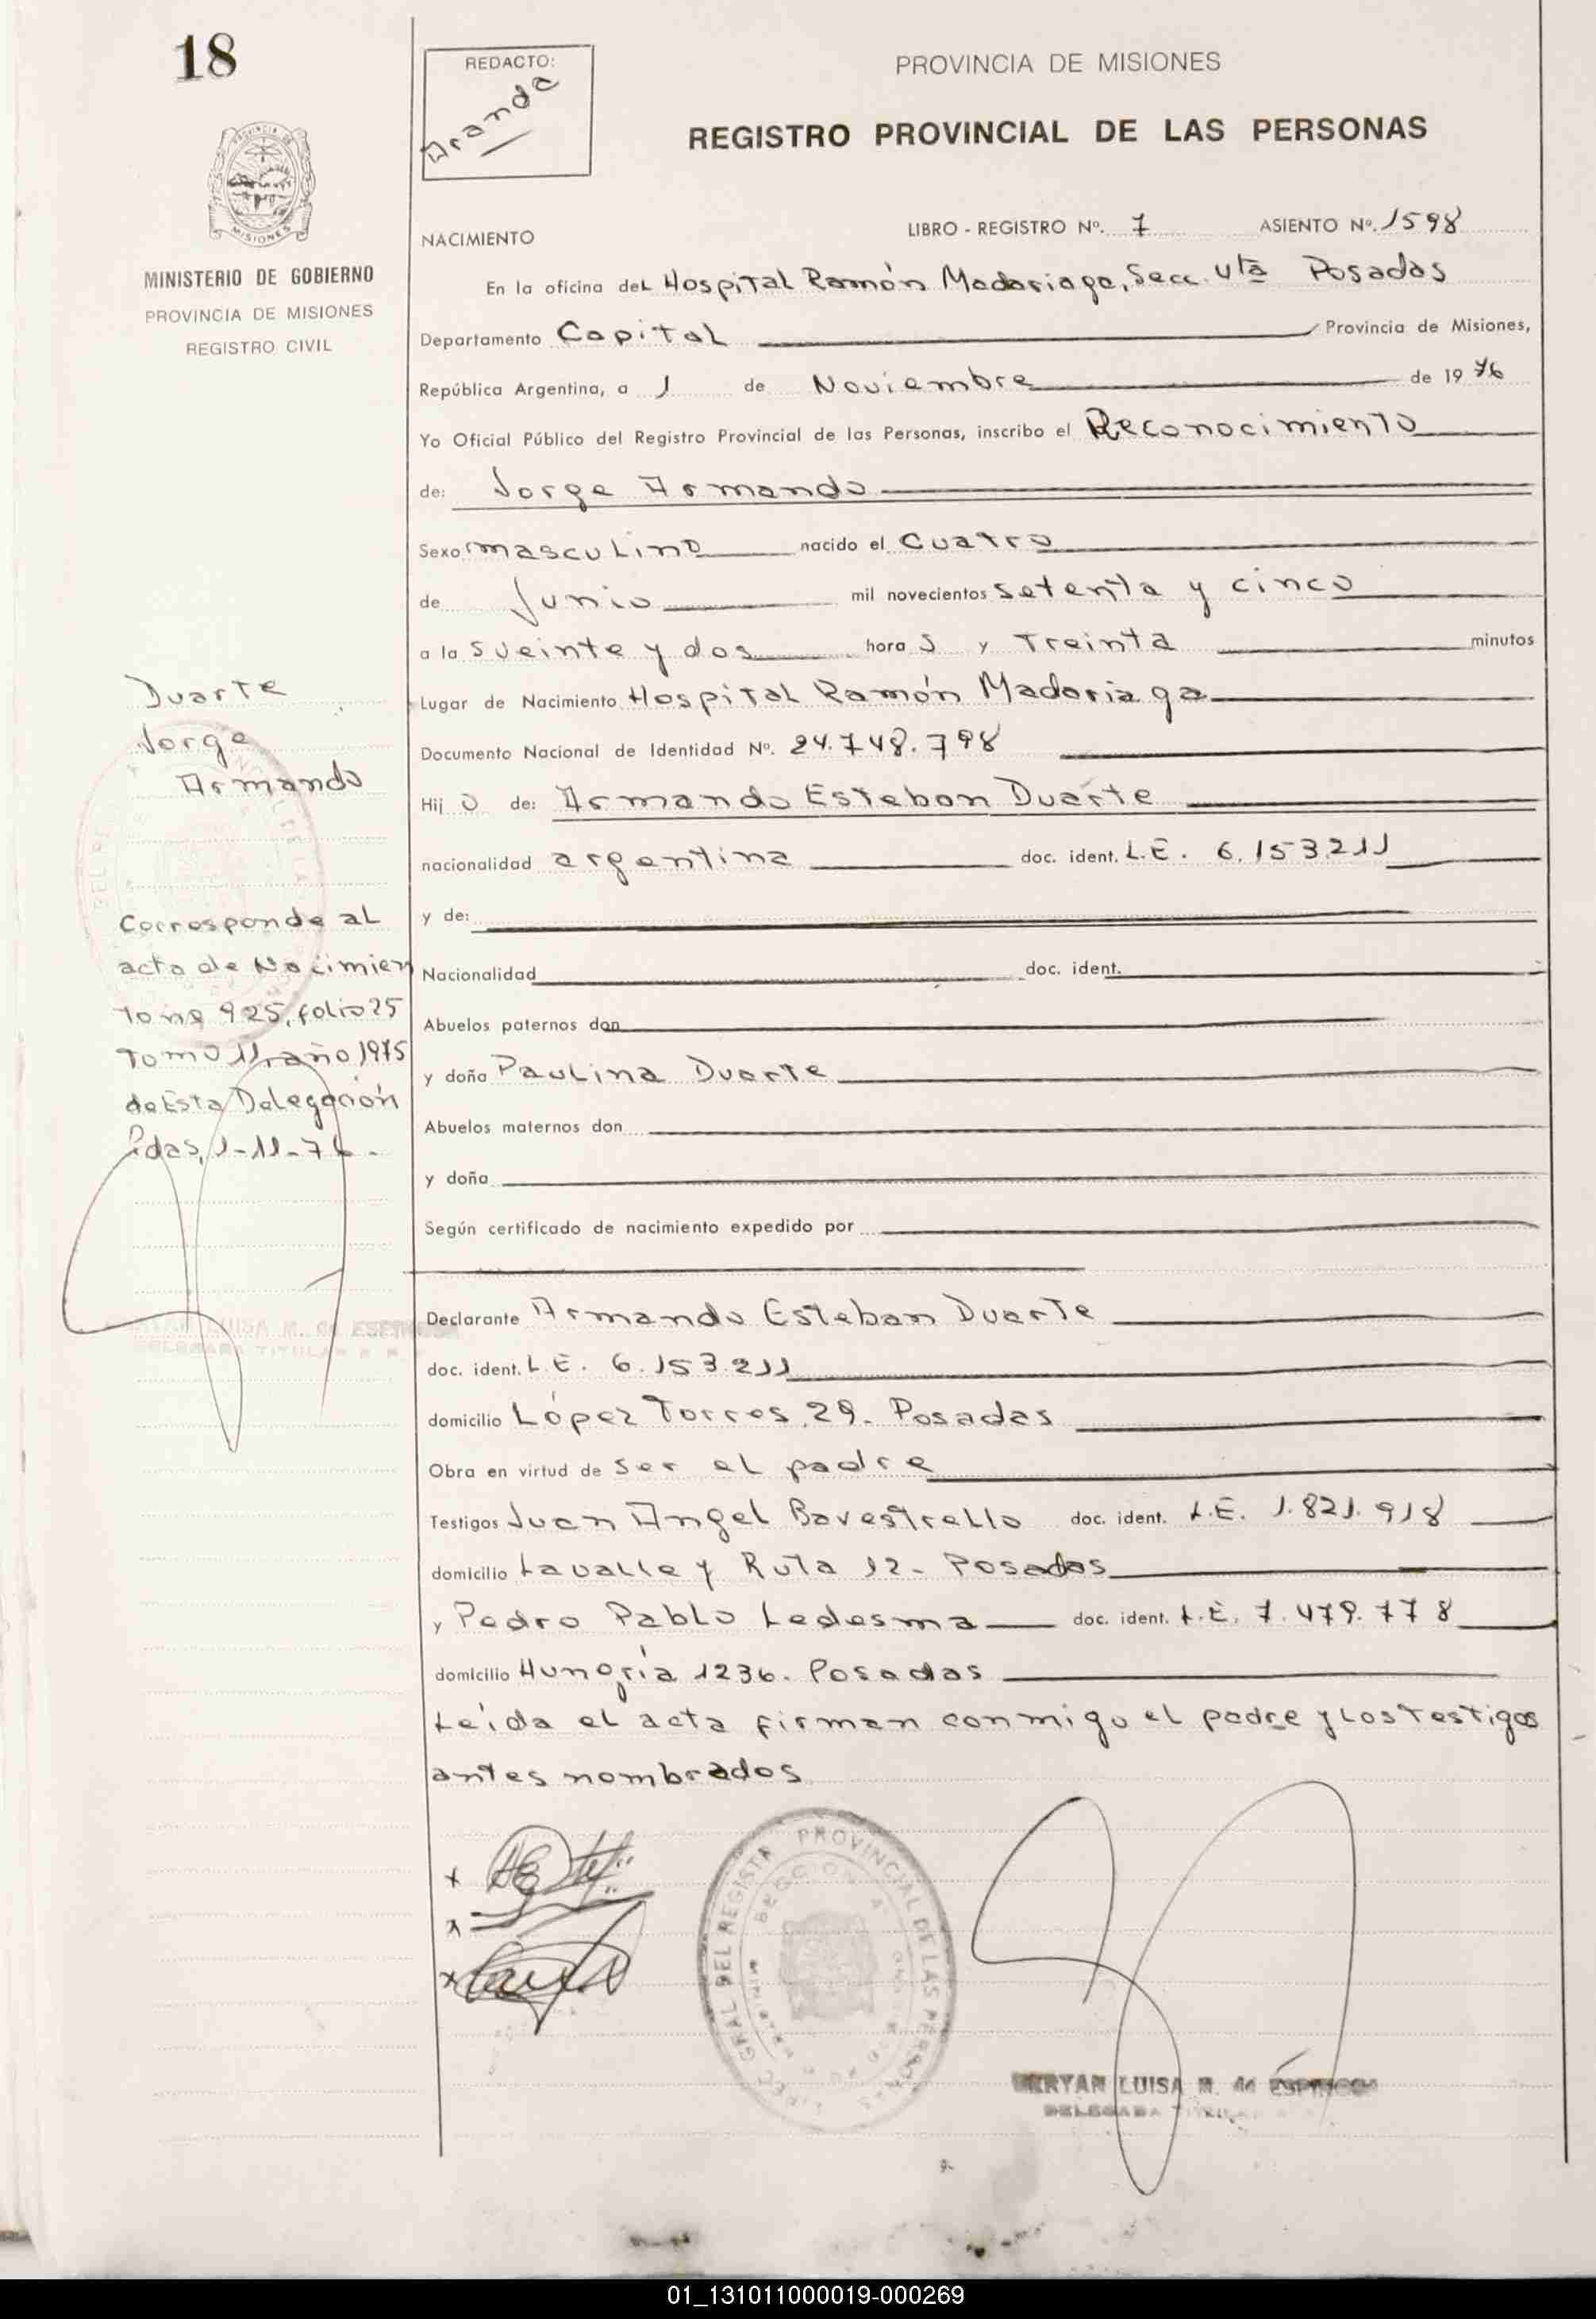 18
REDACTO:
Aranda
PROVINCIA DE MISIONES
REGISTRO PROVINCIAL DE LAS PERSONAS
MISIONES
MINISTERIO DE GOBIERNO
PROVINCIA DE MISIONES
REGISTRO CIVIL
NACIMIENTO
LIBRO - REGISTRO Nº. 7 ASIENTO Nº. 1598
En la oficina del Hospital Ramón Madariaga, Secc. 4ta Posadas
Departamento Capital Provincia de Misiones,
República Argentina, a 1 de Noviembre de 1976
Yo Oficial Público del Registro Provincial de las Personas, inscribo el Reconocimiento
de: Jorge Armando
Sexo masculino nacido el Cuatro
de Junio mil novecientos setenta y cinco
a la s veinte y dos hora s y Treinta minutos
Lugar de Nacimiento Hospital Ramón Madariaga
Documento Nacional de Identidad Nº. 24.748.798
Hij o de: Armando Esteban Duarte
nacionalidad argentina doc. ident. L.E. 6.153.211
y de:
Nacionalidad doc. ident.
Abuelos paternos don
y doña Paulina Duarte
Abuelos maternos don
y doña
Según certificado de nacimiento expedido por
Declarante Armando Esteban Duarte
doc. ident. L.E. 6.153.211
domicilio López Torres 29. Posadas
Obra en virtud de ser el padre
Testigos Juan Angel Bavestrello doc. ident. L.E. 1.821.918
domicilio Lavalle y Ruta 12- Posadas
y Pedro Pablo Ledesma doc. ident. L.E. 7.479.778
domicilio Hungría 1236. Posadas
Leída el acta firman conmigo el padre y los testigos
antes nombrados
Duarte
Jorge
Armando
Corresponde al
acta de Nacimien
to nº 925, folio 25
Tomo 11, año 1975
de Esta Delegación
Pdas, 1-11-76.
LUISA M. de ESPINOSA
DELEGADA TITULAR
GRAL DEL REGISTRO PROVINCIAL DE LAS PERSONAS
LUISA M. de ESPINOSA
DELEGADA
01_131011000019-000269